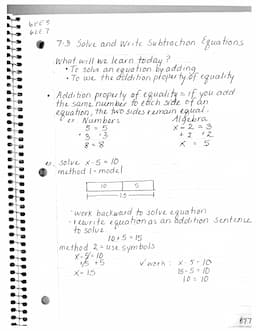 6EE5
6EE7
7.3 Solve and Write Subtraction Equations
What will we learn today?
• To solve an equation by adding
• To use the addition property of equality
• Addition property of equality = if you add
the same number to each side of an
equation, the two sides remain equal.
ex Numbers Algebra
5 = 5 x - 2 = 3
+3 +3 +2 +2
8 = 8 x = 5
ex. solve x - 5 = 10
method 1 - model
10 5
15
- work backward to solve equation
- rewrite equation as an addition sentence
to solve.
10 + 5 = 15
method 2 = use symbols
x - 5 = 10 √ work: x - 5 = 10
+5 +5 15 - 5 = 10
x = 15 10 = 10